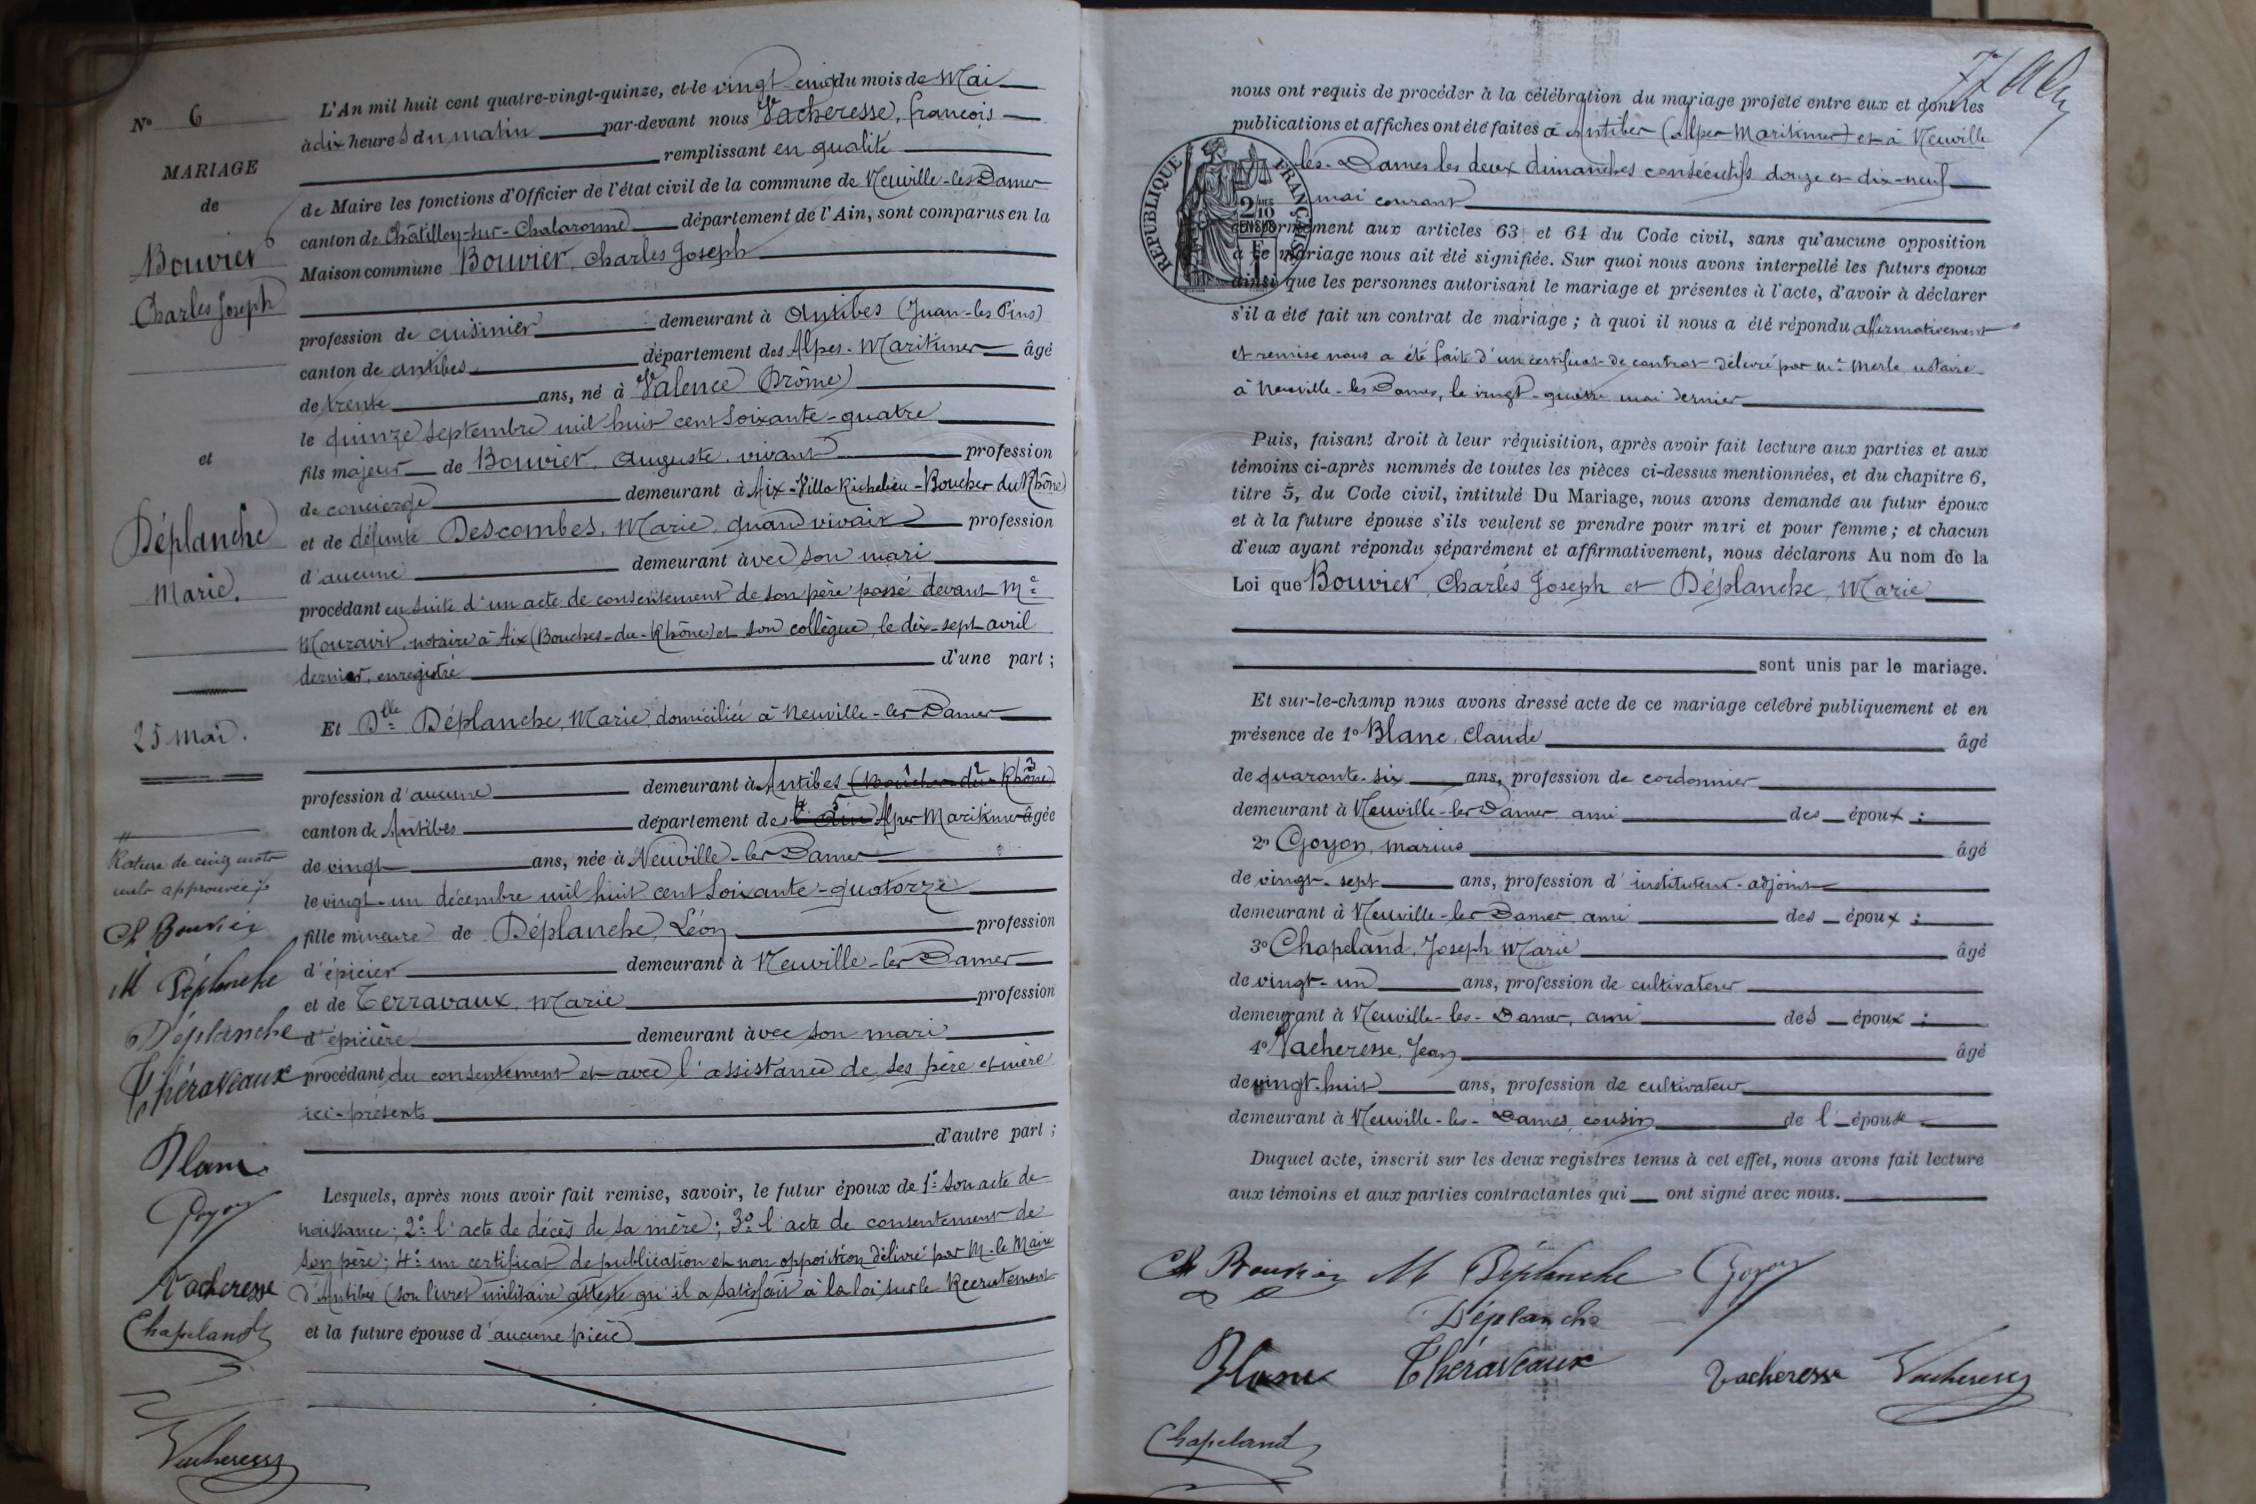 N° 6
MARIAGE
de
Bouvier
Charles Joseph
et
Déplanche
Marie.
25 mai.
Rature de cinq mots
nuls approuvée
Ch Bouvier
M Déplanche
Déplanche
Théraveaux
Blanc
Goyon
Vacheresse
Chapeland
Vacheresse
L'An mil huit cent quatre-vingt-quinze, et le vingt cinq du mois de Mai
à dix heures du matin par-devant nous Vacheresse, françois
remplissant en qualité
de Maire les fonctions d'Officier de l'état civil de la commune de Neuville-les-Dames
canton de Châtillon-sur-Chalaronne département de l'Ain, sont comparus en la
Maison commune Bouvier, Charles Joseph
profession de cuisinier demeurant à Antibes (Juan-les Pins)
canton de Antibes département des Alpes-Maritimes âgé
de trente ans, né à Valence (Drôme)
le quinze septembre mil huit cent soixante-quatre
fils majeur de Bouvier, Auguste, vivant profession
de concierge demeurant à Aix-Villa Richelieu-Bouches du Rhône)
et de défunte Descombes, Marie, quand vivait profession
d'aucune demeurant avec son mari
procédant en suite d'un acte de consentement de son père passé devant Me
Mouravit, notaire à Aix (Bouches-du-Rhône) et son collègue, le dix-sept avril
dernier, enregistré d'une part ;
Et Dlle Déplanche, Marie, domiciliée à Neuville-les-Dames
profession d'aucune demeurant à Antibes (Bouches du Rhône)
canton de Antibes département des l'Ain Alpes Maritimes âgée
de vingt ans, née à Neuville-les-Dames
le vingt-un décembre mil huit cent soixante-quatorze
fille mineure de Déplanche, Léon profession
d'épicier demeurant à Neuville-les-Dames
et de Terravaux, Marie profession
d'épicière demeurant avec son mari
procédant du consentement et avec l'assistance de ses père et mère
ici-présents
d'autre part ;
Lesquels, après nous avoir fait remise, savoir, le futur époux de 1° son acte de
naissance ; 2° l'acte de décès de sa mère ; 3° l'acte de consentement de
son père ; 4° un certificat de publication et non opposition délivré par M. le Maire
d'Antibes (son livret militaire atteste qu'il a satisfait à la loi sur le Recrutement
et la future épouse d'aucune pièce
nous ont requis de procéder à la célébration du mariage projeté entre eux et dont les
publications et affiches ont été faites à Antibes (Alpes-Maritimes) et à Neuville
les-Dames les deux dimanches consécutifs douze et dix-neuf
mai courant
RÉPUBLIQUE FRANÇAISE
2/10 EN SUS
conformément aux articles 63 et 64 du Code civil, sans qu'aucune opposition
à ce mariage nous ait été signifiée. Sur quoi nous avons interpellé les futurs époux
ainsi que les personnes autorisant le mariage et présentes à l'acte, d'avoir à déclarer
s'il a été fait un contrat de mariage ; à quoi il nous a été répondu affirmativement
et remise nous a été faite d'un certificat de contrat délivré par Me Merle notaire
à Neuville-les Dames, le vingt-quatre mai dernier
Puis, faisant droit à leur réquisition, après avoir fait lecture aux parties et aux
témoins ci-après nommés de toutes les pièces ci-dessus mentionnées, et du chapitre 6,
titre 5, du Code civil, intitulé Du Mariage, nous avons demandé au futur époux
et à la future épouse s'ils veulent se prendre pour mari et pour femme ; et chacun
d'eux ayant répondu séparément et affirmativement, nous déclarons Au nom de la
Loi que Bouvier, Charles Joseph et Déplanche, Marie
sont unis par le mariage.
Et sur-le-champ nous avons dressé acte de ce mariage célébré publiquement et en
présence de 1° Blanc, Claude âgé
de quarante-six ans, profession de cordonnier
demeurant à Neuville-les Dames, ami des époux ;
2° Goyon, Marius âgé
de vingt-sept ans, profession d'instituteur-adjoint
demeurant à Neuville-les Dames, ami des époux ;
3° Chapeland, Joseph Marie âgé
de vingt-un ans, profession de cultivateur
demeurant à Neuville-les-Dames, ami des époux ;
4° Vacheresse, Jean âgé
de vingt-huit ans, profession de cultivateur
demeurant à Neuville-les-Dames, cousin de l'épouse
Duquel acte, inscrit sur les deux registres tenus à cet effet, nous avons fait lecture
aux témoins et aux parties contractantes qui ont signé avec nous.
Ch Bouvier M Déplanche Goyon
Déplanche
Blanc Théraveaux Vacheresse Vacheresse
Chapeland